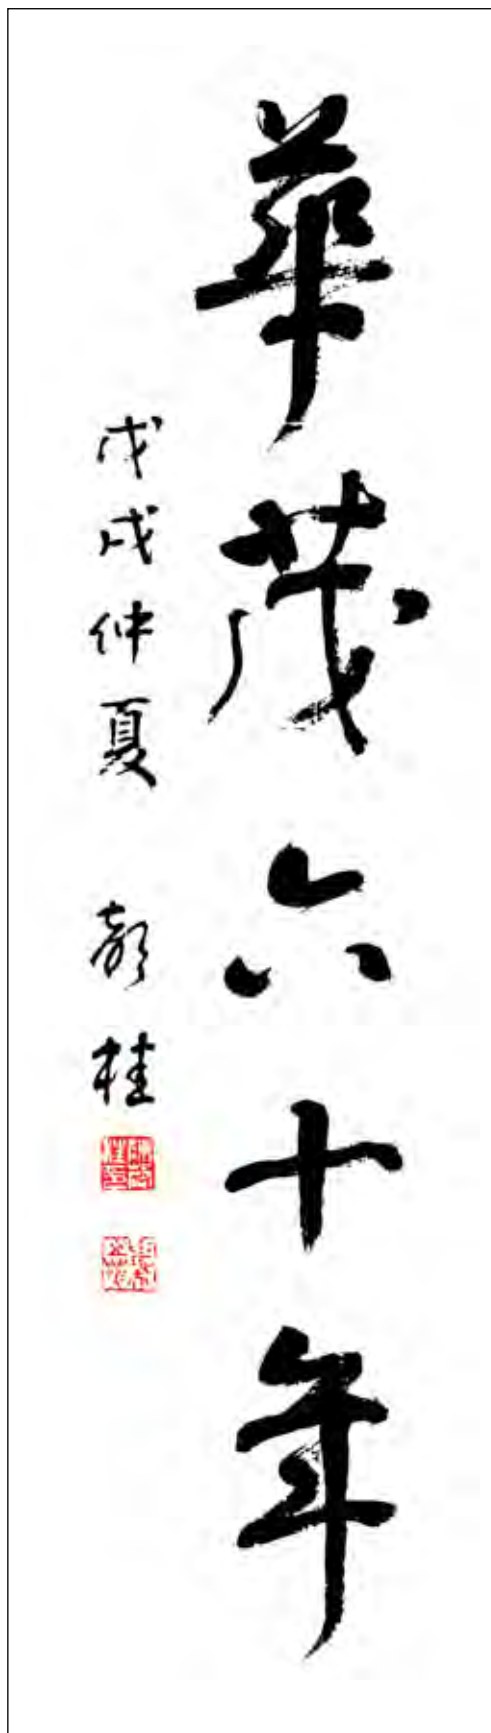 華茂六十年
戊戌仲夏 彭桂